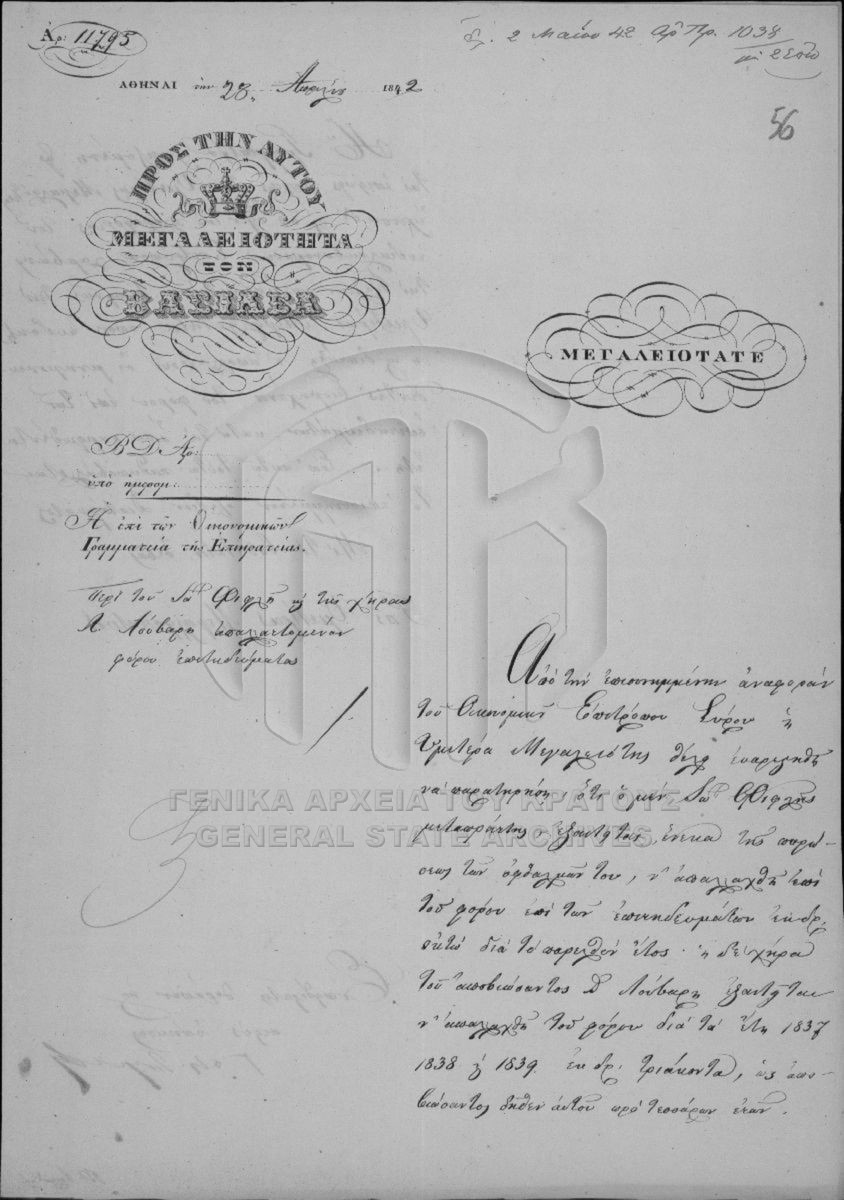 Ἀρ: 11795
2 Μαΐου 42 ἀρ Πρ. 1038
56
ΑΘΗΝΑΙ τὴν 28 Ἀπριλίου 1842
ΠΡΟΣ ΤΗΝ ΑΥΤΟΥ
ΜΕΓΑΛΕΙΟΤΗΤΑ
ΤΟΝ
ΒΑΣΙΛΕΑ
ΜΕΓΑΛΕΙΟΤΑΤΕ
Β Δ Ἀρ:
ὑπὸ ἡμερομ:
Ἡ ἐπὶ τῶν Οἰκονομικῶν
Γραμματεία τῆς Ἐπικρατείας.
Περὶ τοῦ Ἰω Φιφλῆ κ τῆς χήρας
Λούβαρη ἀπαλλαττομένων
φόρου ἐπιτηδεύματος
Ἀπὸ τὴν ἐπισυνημμένην ἀναφορὰν
τοῦ Οἰκονομικοῦ Ἐπιτρόπου Σύρου ἡ
Ὑμετέρα Μεγαλειότης θέλει εὐαρεστηθῆ
νὰ παρατηρήσῃ, ὅτι ὁ μὲν Ἰω Φιφλῆς
μεταπράτης ἐξαιτεῖται, ἕνεκα τῆς πηρώ-
σεως τῶν ὀφθαλμῶν του, ν' ἀπαλλαχθῇ
τοῦ φόρου ἐπὶ τῶν ἐπιτηδευμάτων ἐκ δρ.
ὀκτὼ διὰ τὸ παρελθὸν ἔτος· ἡ δὲ χήρα
τοῦ ἀποβιώσαντος Λούβαρη ἐξαιτεῖται
ν' ἀπαλλαχθῇ τοῦ φόρου διὰ τὰ ἔτη 1837
1838 κ 1839 ἐκ δρ. τριάκοντα, ὡς ἀπο-
βιώσαντος δῆθεν αὐτοῦ πρὸ τεσσάρων ἐτῶν.
ΓΕΝΙΚΑ ΑΡΧΕΙΑ ΤΟΥ ΚΡΑΤΟΥΣ
GENERAL STATE ARCHIVES